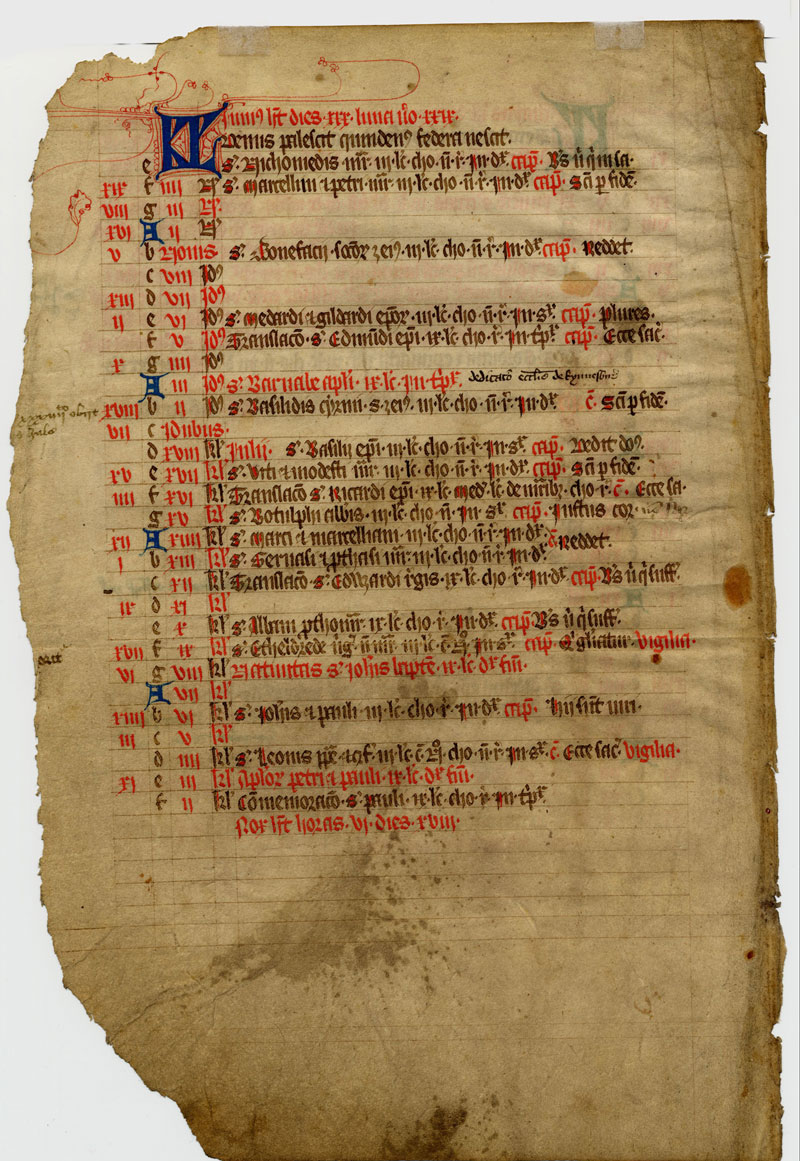 KL Iuni9 hт dies xxx luna ũo xxix.
Denus palescit quinden9 federa nescit.
e Sci Nichomedis mr̃ iii lc̃ cho ñ r̃ In dr̃ cap̃ Vs̃ ĩ q̃ in sa
xix f iiii N̄ Sci Marcellini ⁊ petri mr̃ iii lc̃ cho ñ r̃ In dr̃ cap̃ Scã p fidẽ
viii g iii N̄
xvi A ii N̄
v b Nonis sci Bonefacii socior̃ ⁊ ei9 iii lc̃ cho ñ r̃ In dr̃ cap̃ Reddet
c viii Id9
xiii d vii Id9
ii e vi Id9 sci Medardi ⁊ gildardi ep̃or iii lc̃ cho ñ r̃ In sr̃ cap̃ plures
f v Id9 Translacõ s̃ Edmũdi ep̃i ix lc̃ cho ñ r̃ In t̃pr̃ cap̃ Ecce sac̃
x g iiii Id9
A iii Id9 s̃ Barnabe apl̃i ix lc̃ In t̃pr̃ dedicatio eccl̃ie de
xviii b ii Id9 s̃ Basilidis cyrini s ⁊ ei9 iii lc̃ cho ñ r̃ In dr̃ c̃ Scã p fidẽ
obiit
vii c Idubus
d xviii kl̃ Iulii s̃ Basilii ep̃i iii lc̃ cho ñ r̃ In sr̃ cap̃ Dedit do9
xv e xvii kl̃ s̃ Viti ⁊ modesti mr̃ iii lc̃ cho ñ r̃ In dr̃ cap̃ Scã p fidẽ
iiii f xvi kl̃ Translacõ s̃ Ricardi ep̃i ix lc̃ Med̃ lc̃ de m̃rib9 cho r̃ c̃ Ecce sa
g xv kl̃ s̃ Botulphi abb̃is iii lc̃ cho ñ r̃ In sr̃ cap̃ Iustus cor
xii A xiiii kl̃ s̃ Marci ⁊ marcelliani iii lc̃ cho ñ r̃ In dr̃ c̃ Reddet
i b xiii kl̃ s̃ Geruasi ⁊ p̃thasi mr̃ iii lc̃ cho ñ r̃ In dr̃
c xii kl̃ Translacõ s̃ Edwardi r̃gis ix lc̃ cho r̃ In dr̃ cap̃ Vs̃ ĩ q̃ suff
ix d xi kl̃
e x kl̃ s̃ Albani p̃thomr̃ ix lc̃ cho r̃ In dr̃ cap̃ Vs̃ ĩ q̃ suff
xvii f ix kl̃ s̃ Etheldrede ũg̃ ñ mr̃ iii lc̃ c̃ R̃ In sr̃ cap̃ Q̃ gl̃iatur vigilia
vi g viii kl̃ Natiuitas s̃ Ioh̃is bapt̃e ix lc̃ dr̃ fm̃
A vii kl̃
xiiii b vi kl̃ s̃ Ioh̃is ⁊ pauli iii lc̃ cho r̃ In dr̃ cap̃ Hii sunt uiri
iii c v kl̃
d iiii kl̃ s̃ Leonis pp̃e ⁊ cf̃ iii lc̃ c̃ R̃ cho ñ r̃ In sr̃ c̃ Ecce sac̃ vigilia
xi e iii kl̃ Apl̃or petri ⁊ pauli ix lc̃ dr̃ fm̃
f ii kl̃ Cõmemoracõ s̃ pauli ix lc̃ cho r̃ In t̃pr̃
Nox h̃t horas vi dies xviii